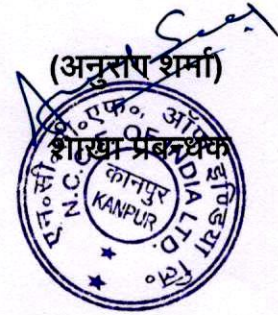 (अनुराग शर्मा)
शाखा प्रबन्धक
एन०सी०सी०एफ० ऑफ इण्डिया लि०
N.C.C.F. OF INDIA LTD.
कानपुर
KANPUR